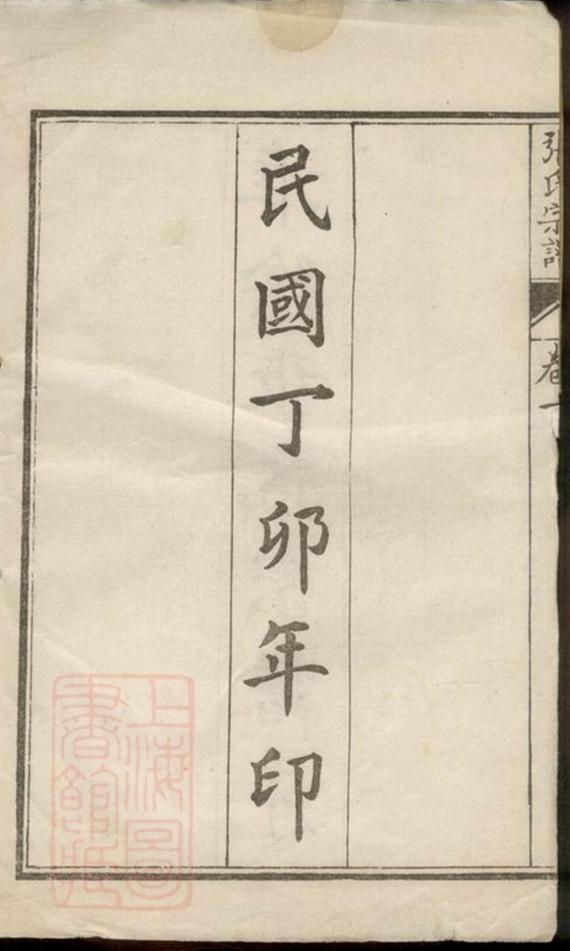 張氏宗譜
卷一
民國丁卯年印
上海圖
書館藏